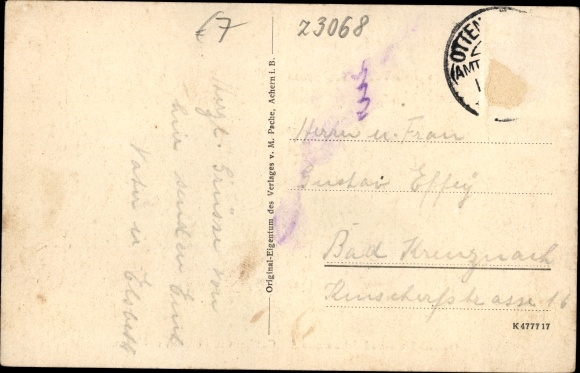 (7
Z3068
OTTEN
(AMT
Herzl. Grüsse von
hier senden Euch
Vater u.
Original-Eigentum des Verlages v. M. Pache, Achern i. B.
Herrn u. Frau
Gustav Effey
Bad Kreuznach
16
K 47717